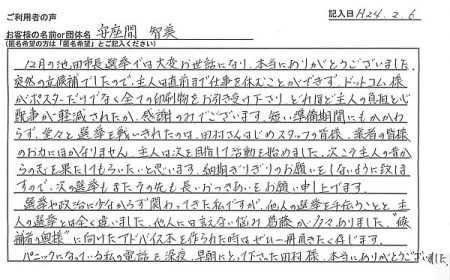 ご利用者の声
記入日 H24.2.6
お客様の名前or団体名 安座間 智美
(匿名希望の方は「匿名希望」とご記入ください)
12月の池田市長選挙では大変お世話になり、本当にありがとうございました。
突然の立候補でしたので、主人は直前まで仕事を休むことができず、ドットコム様
がポスターだけでなく全ての印刷物をお引き受け下さり、どれほど主人の負担と心
配事が軽減されたか、感謝のみでございます。短い準備期間にもかかわ
らず、堂々と選挙を戦いきれたのは、田村さんはじめスタッフの皆様、業者の皆様
のお力にほかなりません。主人は次を目指して活動を始めました。次こそ主人の昔か
らの志を果たしてもらいたいと思います。納期ぎりぎりのお願いをしないように致しま
すので、次の選挙もまたその先も長いおつきあいをお願い申し上げます。
選挙や政治に少なからず関わってきた私ですが、他人の選挙を手伝うことと主
人の選挙とは全く違いました。他人には言えない悩み 葛藤が多々ありました。"候
補者の奥様"に向けたアドバイス本を作られた時はぜひ一冊頂きたく存じます。
パニックになっている私の電話を深夜、早朝にとって下さった田村様、本当にありがとうございました